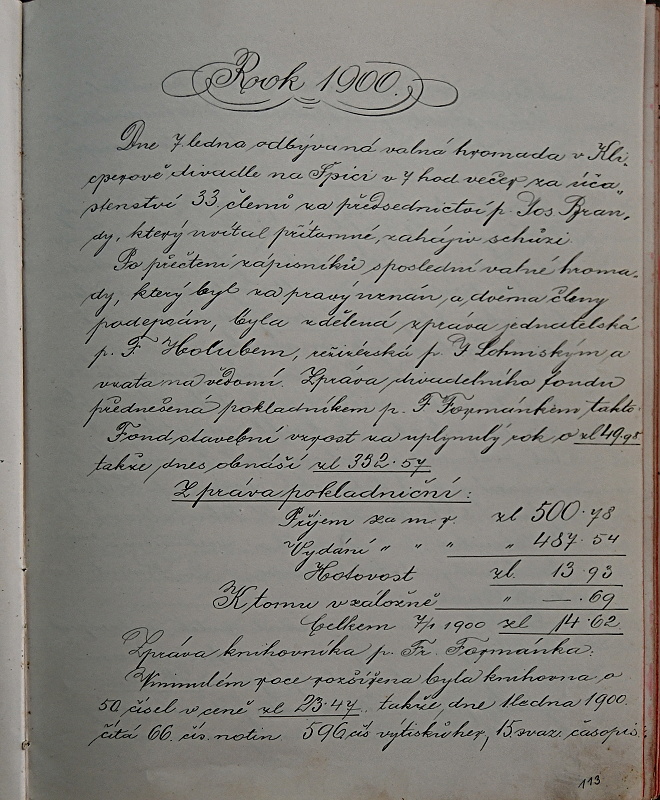 Rok 1900.
Dne 7 ledna odbývaná valná hromada v Kli-
cperově divadle na Špici v 7 hod večer za úča-
stenství 33 členů za předsednictví p. Jos. Bran-
dy, který uvítal přítomné, zahájiv schůzi.
Po přečtení zápisníků s poslední valné hroma-
dy, který byl za pravý uznán a dvěma členy
podepsán, byla sdělená zpráva jednatelská
p. F Holubem, režizérská p. Lohniským a
vzata na vědomí. Zpráva divadelního fondu
přednešená pokladníkem p. F Formánkem, takto:
Fond stavební vzrost za uplynulý rok o zl 49.98
takže dnes obnáší zl 332.57
Zpráva pokladniční:
Příjem za m. r. zl 500.78
Vydání " " " " 487.54
Hotovost zl. 13.93
K tomu v záložně " —.69
Celkem 7/1 1900 zl 14.62
Zpráva knihovníka p. Fr. Formánka:
V minulém roce rozšířena byla knihovna o
50 čísel v ceně zl 23.47. takže, dne 1 ledna 1900.
čítá 66. čís. notin 596 čís výtisků her, 15 svaz. časopis.
113